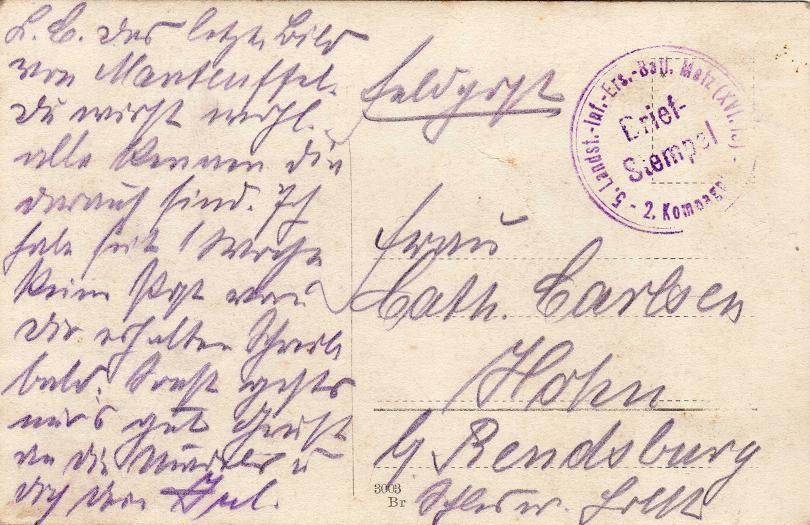 L. C. das letzte Bild
von Manteuffel.
Du wirst wohl
alle kennen die
darauf sind. Ich
habe seit 1 Woche
keine Post von
Dir erhalten Schreib
bald. Sonst gehts
mir's gut Gruß
an die Kinder u
Dich dein
Feldpost
5. Landst.-Inf.-Ers.-Batl. Metz (XVI.
Brief-
Stempel
2. Kompag
Frau
Cath. Carlsen
Hohn
b/ Rendsburg
Schlesw. Holst
3003
Br